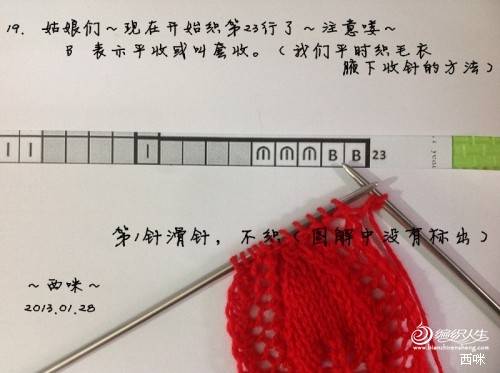 19. 姑娘们~现在开始织第23行了~注意喽~
B 表示平收或叫套收。(我们平时织毛衣
腋下收针的方法)
I I I m m m B B 23
第1针滑针，不织(图解中没有标出)
~西咪~
2013.01.28
编织人生
www.bianzhirensheng.com
西咪